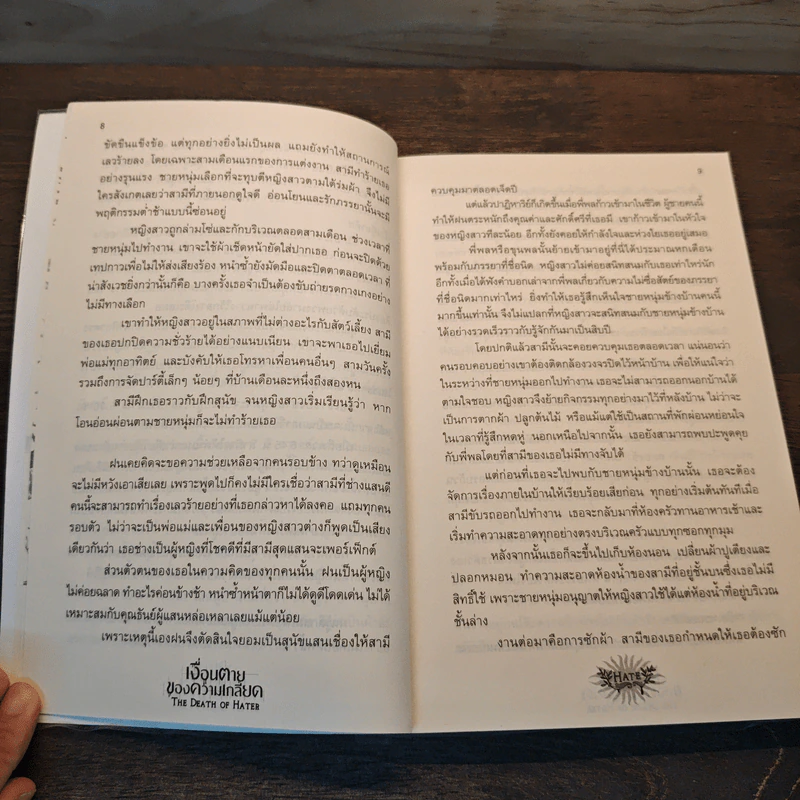 8
ขัดขืนแข็งข้อ แต่ทุกอย่างยิ่งไม่เป็นผล แถมยังทำให้สถานการณ์
เลวร้ายลง โดยเฉพาะสามเดือนแรกของการแต่งงาน สามีทำร้ายเธอ
อย่างรุนแรง ชายหนุ่มเลือกที่จะทุบตีหญิงสาวตามใต้ร่มผ้า จึงไม่มี
ใครสังเกตเลยว่าสามีที่ภายนอกดูใจดี อ่อนโยนและรักภรรยานั้นจะมี
พฤติกรรมต่ำช้าแบบนี้ซ่อนอยู่
หญิงสาวถูกล่ามโซ่และกักบริเวณตลอดสามเดือน ช่วงเวลาที่
ชายหนุ่มไปทำงาน เขาจะใช้ผ้าเช็ดหน้ายัดใส่ปากเธอ ก่อนจะปิดด้วย
เทปกาวเพื่อไม่ให้ส่งเสียงร้อง หนำซ้ำยังมัดมือและปิดตาตลอดเวลา ที่
น่าสังเวชยิ่งกว่านั้นก็คือ บางครั้งเธอจำเป็นต้องขับถ่ายรดกางเกงอย่าง
ไม่มีทางเลือก
เขาทำให้หญิงสาวอยู่ในสภาพที่ไม่ต่างอะไรกับสัตว์เลี้ยง สามี
ของเธอปกปิดความชั่วร้ายได้อย่างแนบเนียน เขาจะพาเธอไปเยี่ยม
พ่อแม่ทุกอาทิตย์ และบังคับให้เธอโทรหาเพื่อนคนอื่นๆ สามวันครั้ง
รวมถึงการจัดปาร์ตี้เล็กๆ น้อยๆ ที่บ้านเดือนละหนึ่งถึงสองหน
สามีฝึกเธอราวกับฝึกสุนัข จนหญิงสาวเริ่มเรียนรู้ว่า หาก
โอนอ่อนผ่อนตามชายหนุ่มก็จะไม่ทำร้ายเธอ
ฝนเคยคิดจะขอความช่วยเหลือจากคนรอบข้าง ทว่าดูเหมือน
จะไม่มีหวังเอาเสียเลย เพราะพูดไปก็คงไม่มีใครเชื่อว่าสามีที่ช่างแสนดี
คนนี้จะสามารถทำเรื่องเลวร้ายอย่างที่เธอกล่าวหาได้ลงคอ แถมทุกคน
รอบตัว ไม่ว่าจะเป็นพ่อแม่และเพื่อนของหญิงสาวต่างก็พูดเป็นเสียง
เดียวกันว่า เธอช่างเป็นผู้หญิงที่โชคดีที่มีสามีสุดแสนจะเพอร์เฟ็กต์
ส่วนตัวตนของเธอในความคิดของทุกคนนั้น ฝนเป็นผู้หญิง
ไม่ค่อยฉลาด ทำอะไรค่อนข้างช้า หนำซ้ำหน้าตาก็ไม่ได้ดูดีโดดเด่น ไม่ได้
เหมาะสมกับคุณธันย์ผู้แสนหล่อเหลาเลยแม้แต่น้อย
เพราะเหตุนี้เองฝนจึงตัดสินใจยอมเป็นสุนัขแสนเชื่องให้สามี
เงื่อนตาย
ของความเกลียด
THE DEATH OF HATER
9
ควบคุมมาตลอดเจ็ดปี
แต่แล้วปาฏิหาริย์ก็เกิดขึ้นเมื่อพี่พลก้าวเข้ามาในชีวิต ผู้ชายคนนี้
ทำให้ฝนตระหนักถึงคุณค่าและศักดิ์ศรีที่เธอมี เขาก้าวเข้ามาในหัวใจ
ของหญิงสาวทีละน้อย อีกทั้งยังคอยให้กำลังใจและห่วงใยเธออยู่เสมอ
พี่พลหรือขุนพลนั้นย้ายเข้ามาอยู่ที่นี่ได้ประมาณหกเดือน
พร้อมกับภรรยาที่ชื่อนิด หญิงสาวไม่ค่อยสนิทสนมกับเธอเท่าไหร่นัก
อีกทั้งเมื่อได้ฟังคำบอกเล่าจากพี่พลเกี่ยวกับความไม่ซื่อสัตย์ของภรรยา
ที่ชื่อนิดมากเท่าไหร่ ยิ่งทำให้เธอรู้สึกเห็นใจชายหนุ่มข้างบ้านคนนี้
มากขึ้นเท่านั้น จึงไม่แปลกที่หญิงสาวจะสนิทสนมกับชายหนุ่มข้างบ้าน
ได้อย่างรวดเร็วราวกับรู้จักกันมาเป็นสิบปี
โดยปกติแล้วสามีนั้นจะคอยควบคุมเธอตลอดเวลา แน่นอนว่า
คนรอบคอบอย่างเขาต้องติดกล้องวงจรปิดไว้หน้าบ้าน เพื่อให้แน่ใจว่า
ในระหว่างที่ชายหนุ่มออกไปทำงาน เธอจะไม่สามารถออกนอกบ้านได้
ตามใจชอบ หญิงสาวจึงย้ายกิจกรรมทุกอย่างมาไว้ที่หลังบ้าน ไม่ว่าจะ
เป็นการตากผ้า ปลูกต้นไม้ หรือแม้แต่ใช้เป็นสถานที่พักผ่อนหย่อนใจ
ในเวลาที่รู้สึกหดหู่ นอกเหนือไปจากนั้น เธอยังสามารถพบปะพูดคุย
กับพี่พลโดยที่สามีของเธอไม่มีทางจับได้
แต่ก่อนที่เธอจะไปพบกับชายหนุ่มข้างบ้านนั้น เธอจะต้อง
จัดการเรื่องภายในบ้านให้เรียบร้อยเสียก่อน ทุกอย่างเริ่มต้นทันทีเมื่อ
สามีขับรถออกไปทำงาน เธอจะกลับมาที่ห้องครัวทานอาหารเช้าและ
เริ่มทำความสะอาดทุกอย่างตรงบริเวณครัวแบบทุกซอกทุกมุม
หลังจากนั้นเธอก็จะขึ้นไปเก็บห้องนอน เปลี่ยนผ้าปูเตียงและ
ปลอกหมอน ทำความสะอาดห้องน้ำของสามีที่อยู่ชั้นบนซึ่งเธอไม่มี
สิทธิ์ใช้ เพราะชายหนุ่มอนุญาตให้หญิงสาวใช้ได้แต่ห้องน้ำที่อยู่บริเวณ
ชั้นล่าง
งานต่อมาคือการซักผ้า สามีของเธอกำหนดให้เธอต้องซัก
HATE